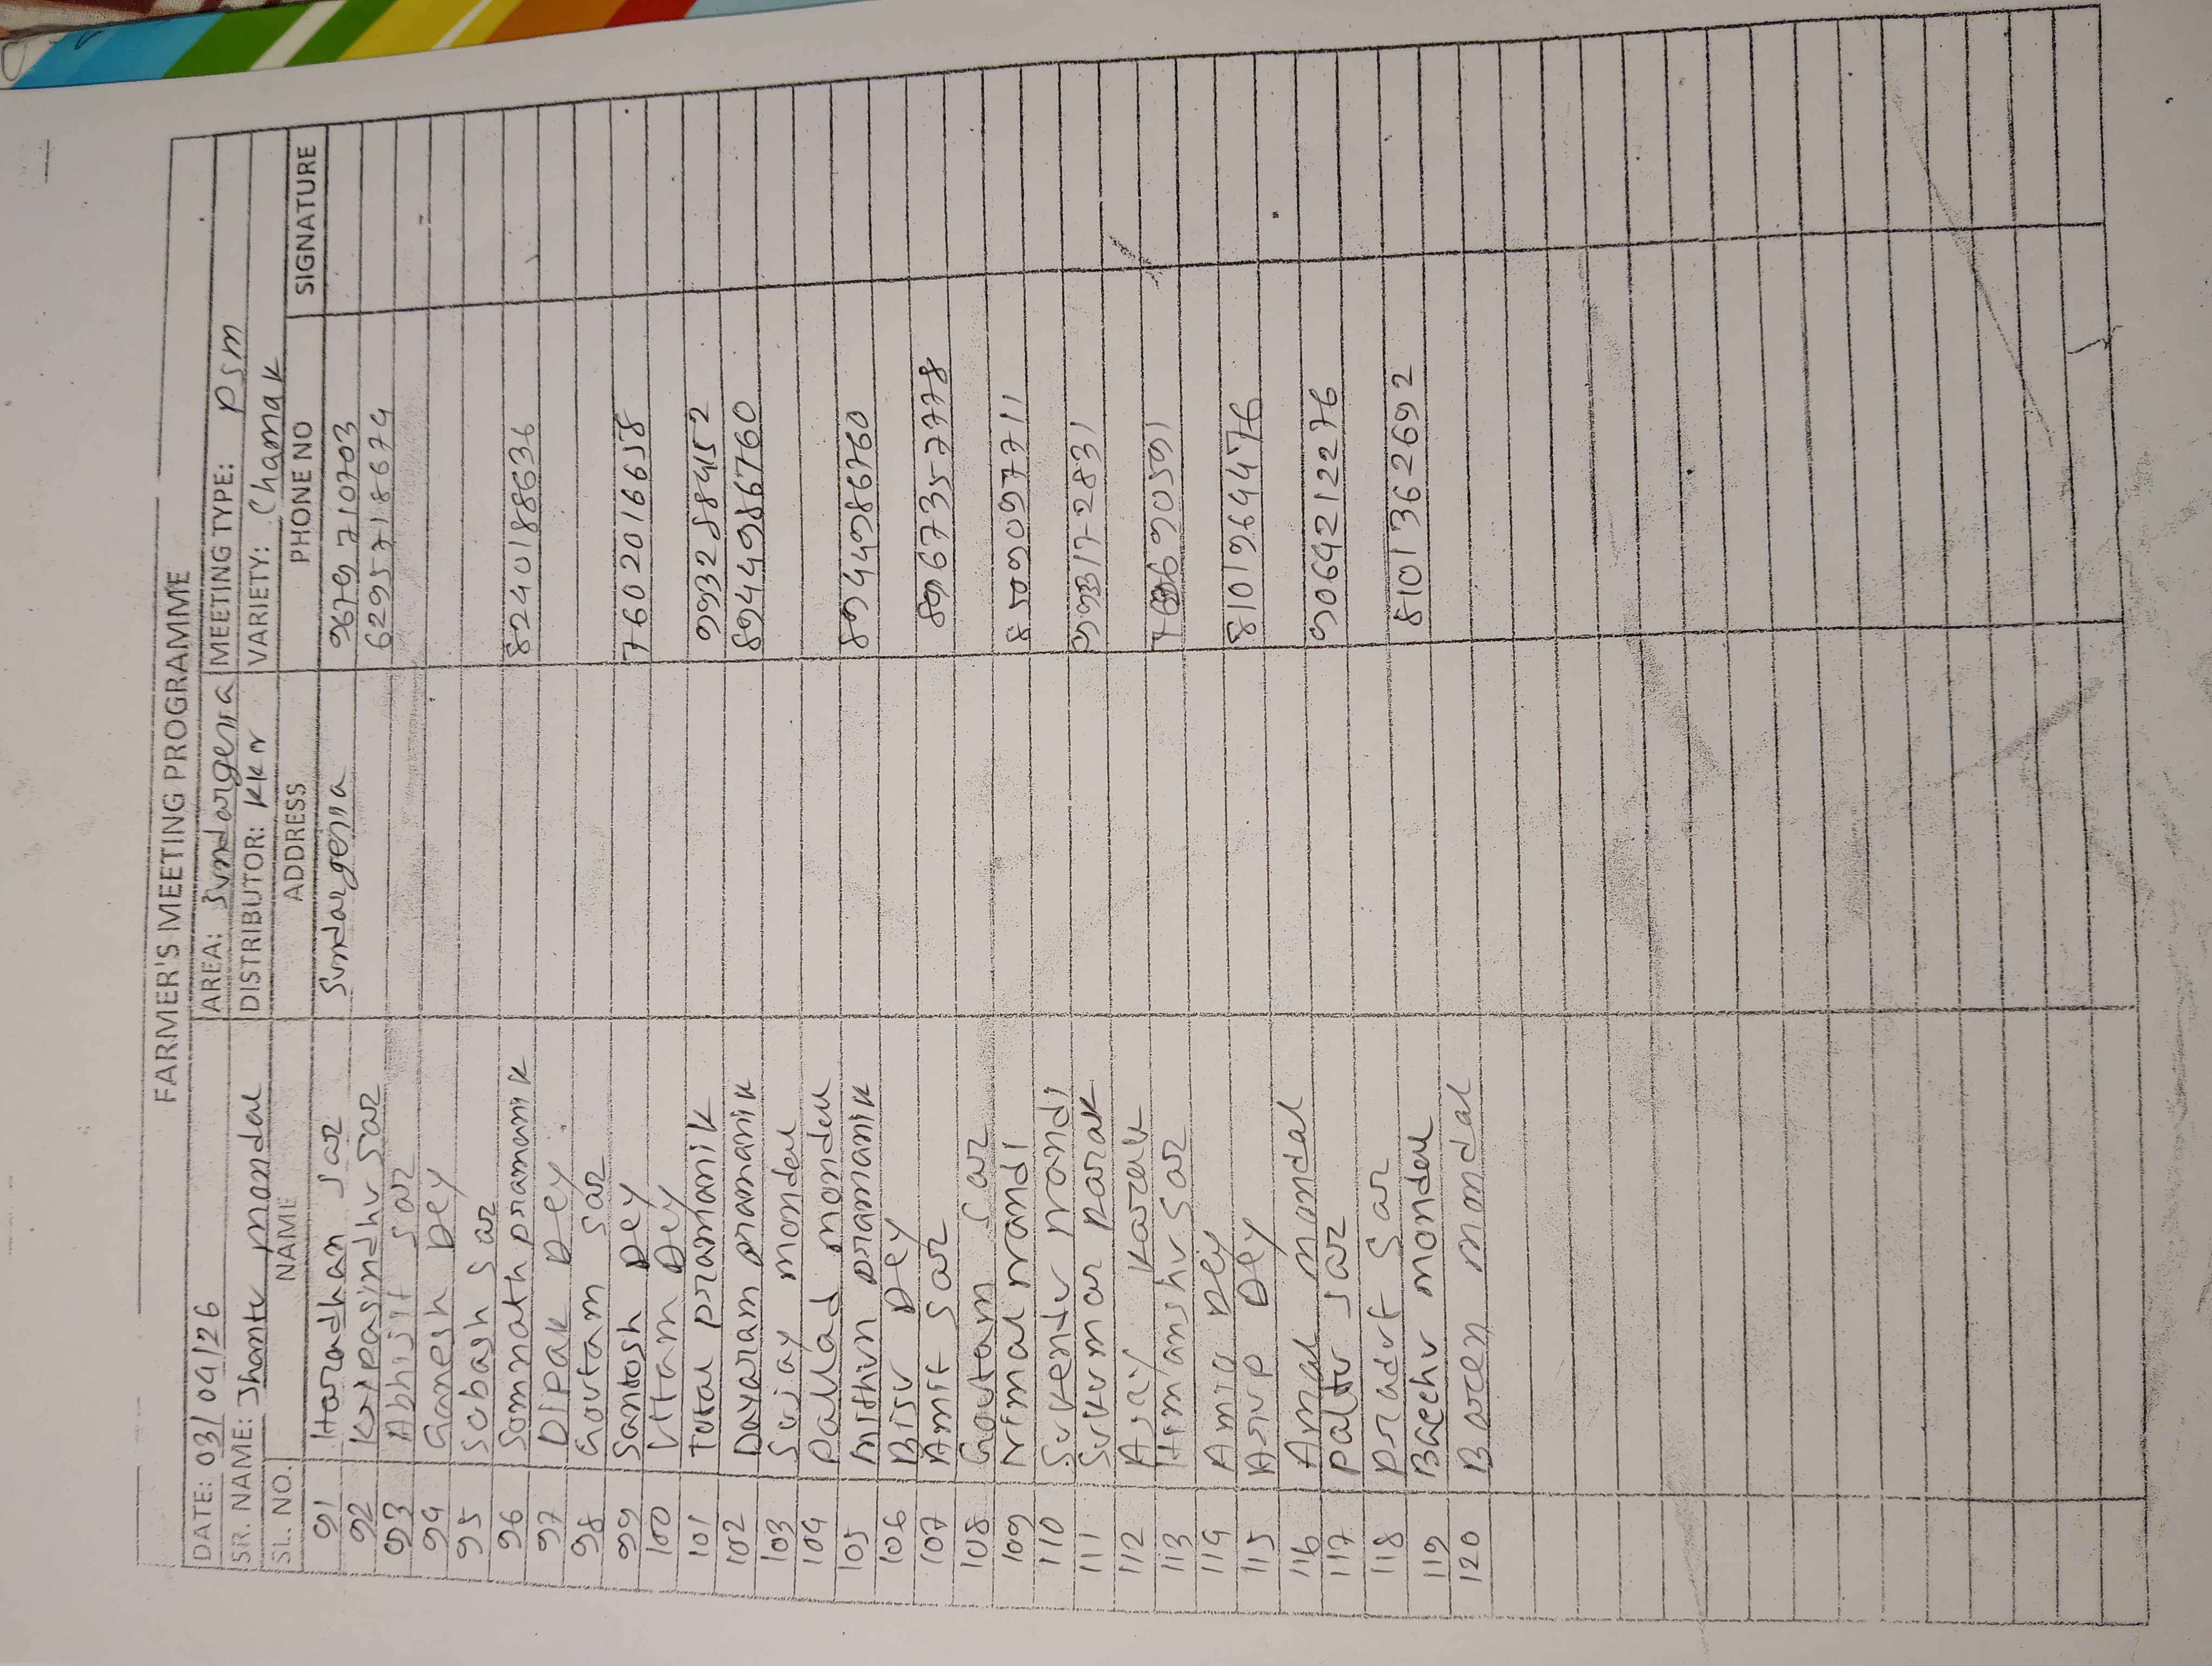 FARMER'S MEETING PROGRAMME
DATE: 03/04/26 AREA: Sundargeria MEETING TYPE: PSM
SR. NAME: Jhantu mondal DISTRIBUTOR: KKN VARIETY: Chamak
SL. NO. NAME ADDRESS PHONE NO SIGNATURE
91 Haradhan Sar Sundargeria 9679710703
92 Kripasindhu Sar 6295718674
93 Abhijit Sar
94 Ganesh Dey
95 Subash Sar
96 Somnath pramanik 8240188636
97 Dipak Dey
98 Goutam Sar
99 Santosh Dey 7602016658
100 Uttam Dey
101 Tutal pramanik 9932888452
102 Dayaram pramanik 8944986760
103 Sujay mondal
104 pallad mondal
105 Mithun pramanik 8944986760
106 Bisu Dey
107 Amit Sar 8967357778
108 Goutam Sar
109 Nirmal mandi 8509097711
110 Sukendu mandi
111 Sukumar parak 9933172831
112 Ajay Karak
113 Himanshu Sar 690591
114 Amia Dey
115 Arup Dey 8101964476
116 Amal mondal
117 paltu Sar 9064212276
118 pradut Sar
119 Bacchu mondal 8101362692
120 Baren mondal